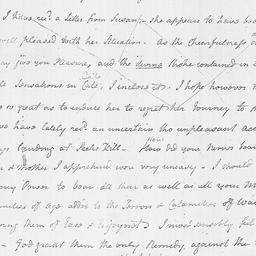 I have recd. a Letter from Susan, - she appears to have
well pleased with her Situation. As the Chearfulness
may give you Pleasure, and the those contained in
Sensations in I inclose it. I hope however
so great as to induce her to regret her Journey to
have lately recd. an uncertain tho unpleasant acc
Landing at Peeks Kill - How did your Nerves bear
& Mother I apprehend were very uneasy. - I should
my Power to bear all their as well as all your
of age added to the Terrors & Calamities of War
them of Ease & Enjoyment I most sensibly feel
- God grant them the only Remedy, against the